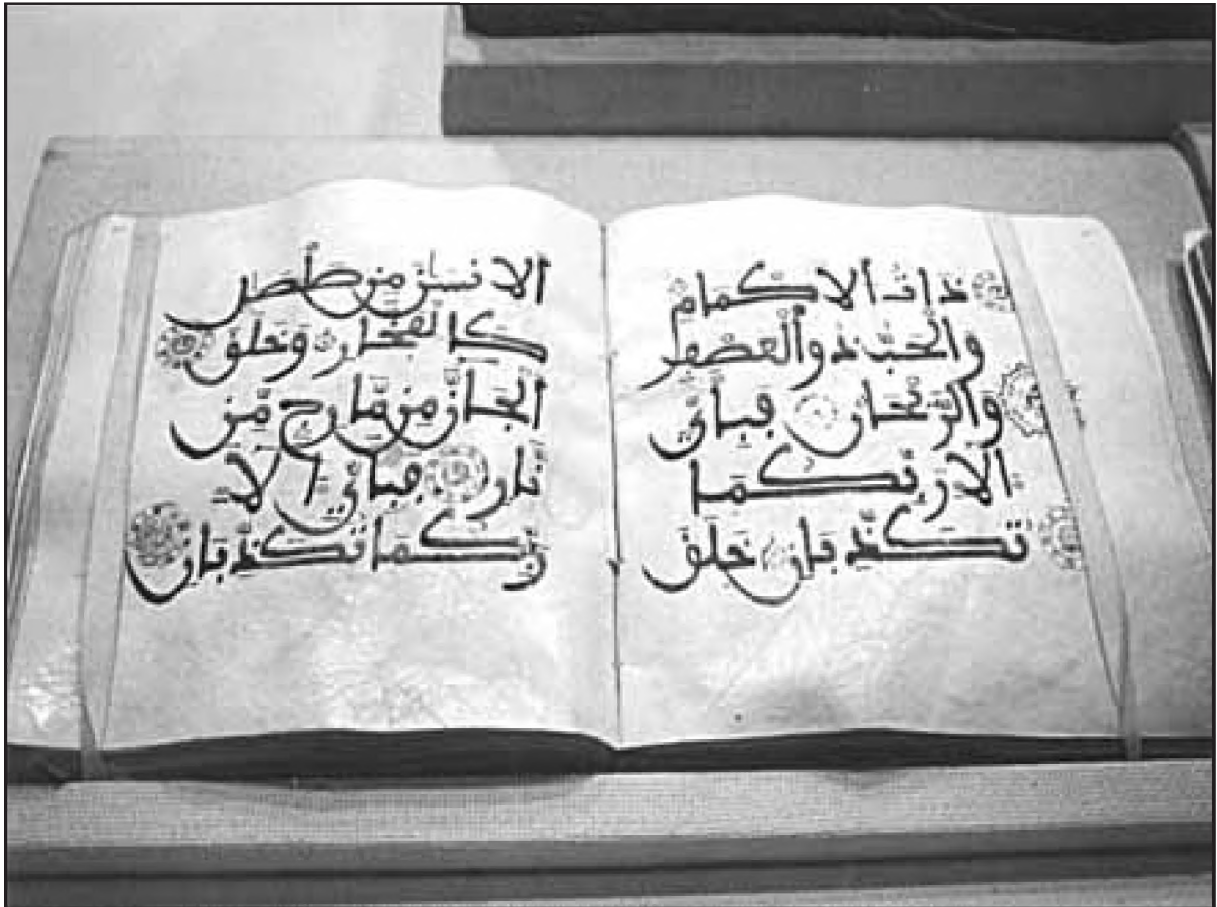 ذات الاكمام
والحب ذو العصف
والريحان فباي
الا ربكما
تكذبان خلق
الانسن من صلصل
كالفخار وخلق
الجان من مارج من
نار فباي الا
ربكما تكذبان